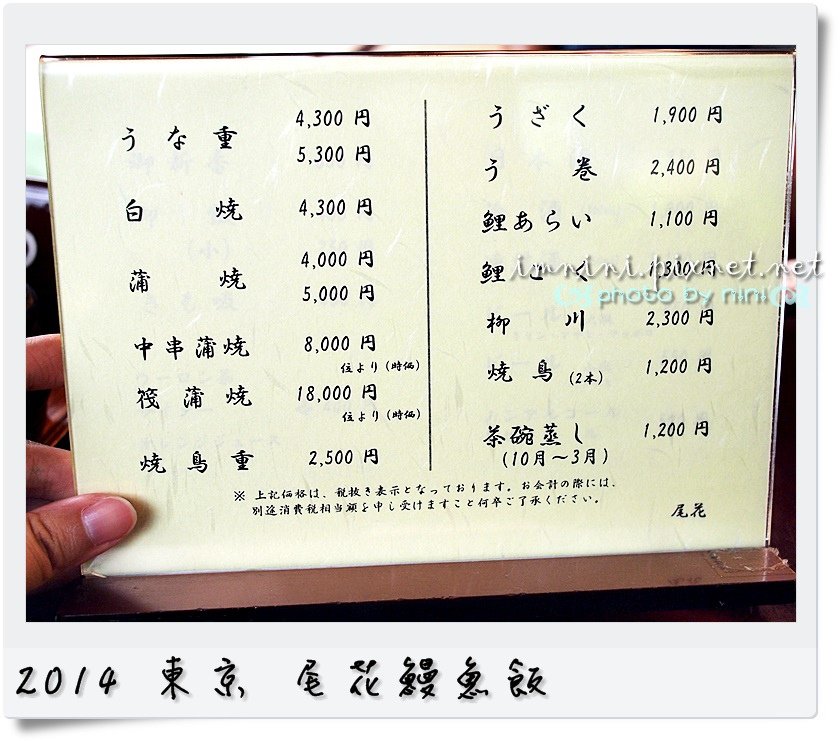 うな重 4,300 円
5,300 円
白焼 4,300 円
蒲焼 4,000 円
5,000 円
中串蒲焼 8,000 円
位より (時価)
筏蒲焼 18,000 円
位より (時価)
焼鳥重 2,500 円
うざく 1,900 円
う巻 2,400 円
鯉あらい 1,100 円
鯉こく 1,300 円
柳川 2,300 円
焼鳥 (2本) 1,200 円
茶碗蒸し 1,200 円
(10月~3月)
※ 上記価格は、税抜き表示となっております。お会計の際には、
別途消費税相当額を申し受けますこと何卒ご了承ください。
尾花
innini.pixnet.net
photo by nini
2014 東京 尾花鰻魚飯